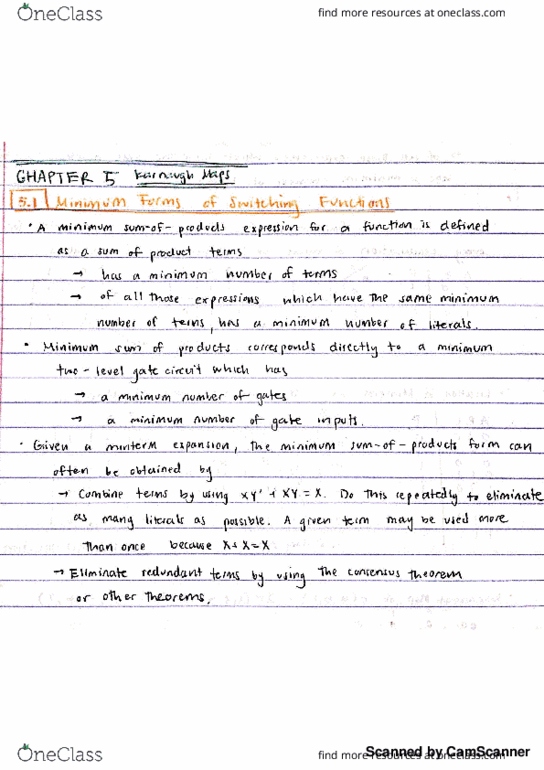 OneClass
find more resources at oneclass.com
CHAPTER 5 Karnaugh Maps
5.1 Minimum Forms of Switching Functions
• A minimum sum-of-products expression for a function is defined
as a sum of product terms
→ has a minimum number of terms
→ of all those expressions which have the same minimum
number of terms has a minimum number of literals.
• Minimum sum of products corresponds directly to a minimum
two-level gate circuit which has
→ a minimum number of gates
→ a minimum number of gate inputs.
• Given a minterm expansion, the minimum sum-of-products form can
often be obtained by
→ Combine terms by using XY' + XY = X. Do this repeatedly to eliminate
as many literals as possible. A given term may be used more
than once because X+X=X
→ Eliminate redundant terms by using the consensus theorem
or other theorems.
OneClass
find more resources at oneclass.com
Scanned by CamScanner